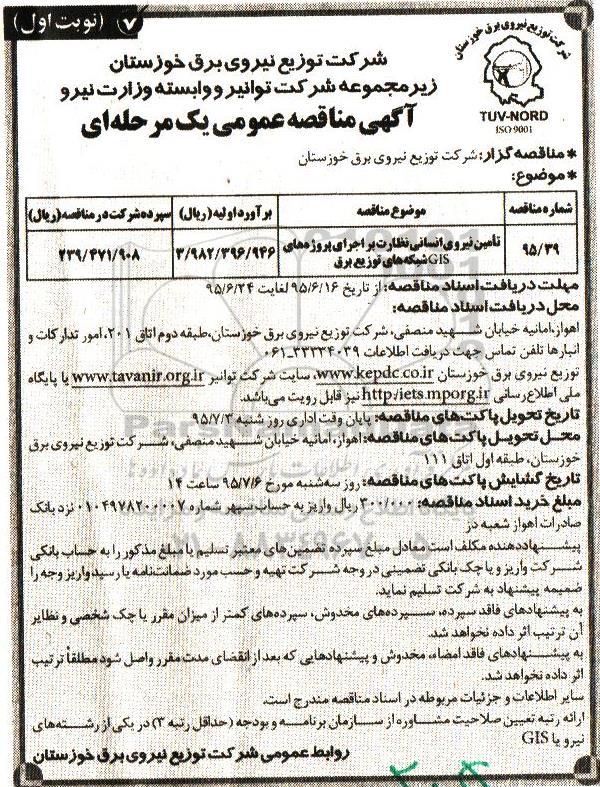 ۷ (نوبت اول)
شرکت توزیع نیروی برق خوزستان
TUV-NORD
ISO 9001
شرکت توزیع نیروی برق خوزستان
زیرمجموعه شرکت توانیر و وابسته وزارت نیرو
آگهی مناقصه عمومی یک مرحله‌ای
* مناقصه گزار: شرکت توزیع نیروی برق خوزستان
* موضوع:
شماره مناقصه موضوع مناقصه برآورد اولیه (ریال) سپرده شرکت در مناقصه (ریال)
۹۵/۳۹ تأمین نیروی انسانی نظارت بر اجرای پروژه‌های GIS شبکه‌های توزیع برق ۳/۹۸۲/۳۹۶/۹۴۶ ۲۳۹/۴۷۱/۹۰۸
مهلت دریافت اسناد مناقصه: از تاریخ ۹۵/۶/۱۶ لغایت ۹۵/۶/۲۴
محل دریافت اسناد مناقصه:
اهواز، امانیه خیابان شهید منصفی، شرکت توزیع نیروی برق خوزستان، طبقه دوم اتاق ۲۰۱، امور تدارکات و
انبارها تلفن تماس جهت دریافت اطلاعات ۳۳۳۳۴۰۳۹-۰۶۱
توزیع نیروی برق خوزستان www.kepdc.co.ir، سایت شرکت توانیر www.tavanir.org.ir یا پایگاه
ملی اطلاع‌رسانی http:/iets.mporg.ir نیز قابل رویت می‌باشد.
تاریخ تحویل پاکت‌های مناقصه: پایان وقت اداری روز شنبه ۹۵/۷/۳
محل تحویل پاکت‌های مناقصه: اهواز، امانیه خیابان شهید منصفی، شرکت توزیع نیروی برق
خوزستان، طبقه اول اتاق ۱۱۱
تاریخ گشایش پاکت‌های مناقصه: روز سه‌شنبه مورخ ۹۵/۷/۶ ساعت ۱۴
مبلغ خرید اسناد مناقصه: ۳۰۰/۰۰۰ ریال واریز به حساب سپهر شماره ۰۱۰۴۹۷۸۲۰۰۰۰۷ نزد بانک
صادرات اهواز شعبه دز
پیشنهاددهنده مکلف است معادل مبلغ سپرده تضمین‌های معتبر تسلیم یا مبلغ مذکور را به حساب بانکی
شرکت واریز و یا چک بانکی تضمینی در وجه شرکت تهیه و حسب مورد ضمانت‌نامه یا رسید واریز وجه را
ضمیمه پیشنهاد به شرکت تسلیم نماید.
به پیشنهادهای فاقد سپرده، سپرده‌های مخدوش، سپرده‌های کمتر از میزان مقرر یا چک شخصی و نظایر
آن ترتیب اثر داده نخواهد شد.
به پیشنهادهای فاقد امضاء، مخدوش و پیشنهادهایی که بعد از انقضای مدت مقرر واصل شود مطلقاً ترتیب
اثر داده نخواهد شد.
سایر اطلاعات و جزئیات مربوطه در اسناد مناقصه مندرج است.
ارائه رتبه تعیین صلاحیت مشاوره از سازمان برنامه و بودجه (حداقل رتبه ۳) در یکی از رشته‌های
نیرو یا GIS
روابط عمومی شرکت توزیع نیروی برق خوزستان